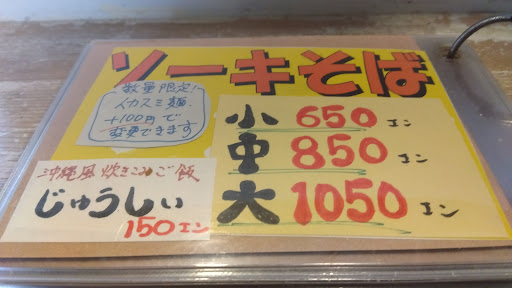 ソーキそば
数量限定!
イカスミ麺
+100円で
変更できます
小 650エン
中 850エン
大 1050エン
沖縄風炊きこみご飯
じゅうしぃ
150エン